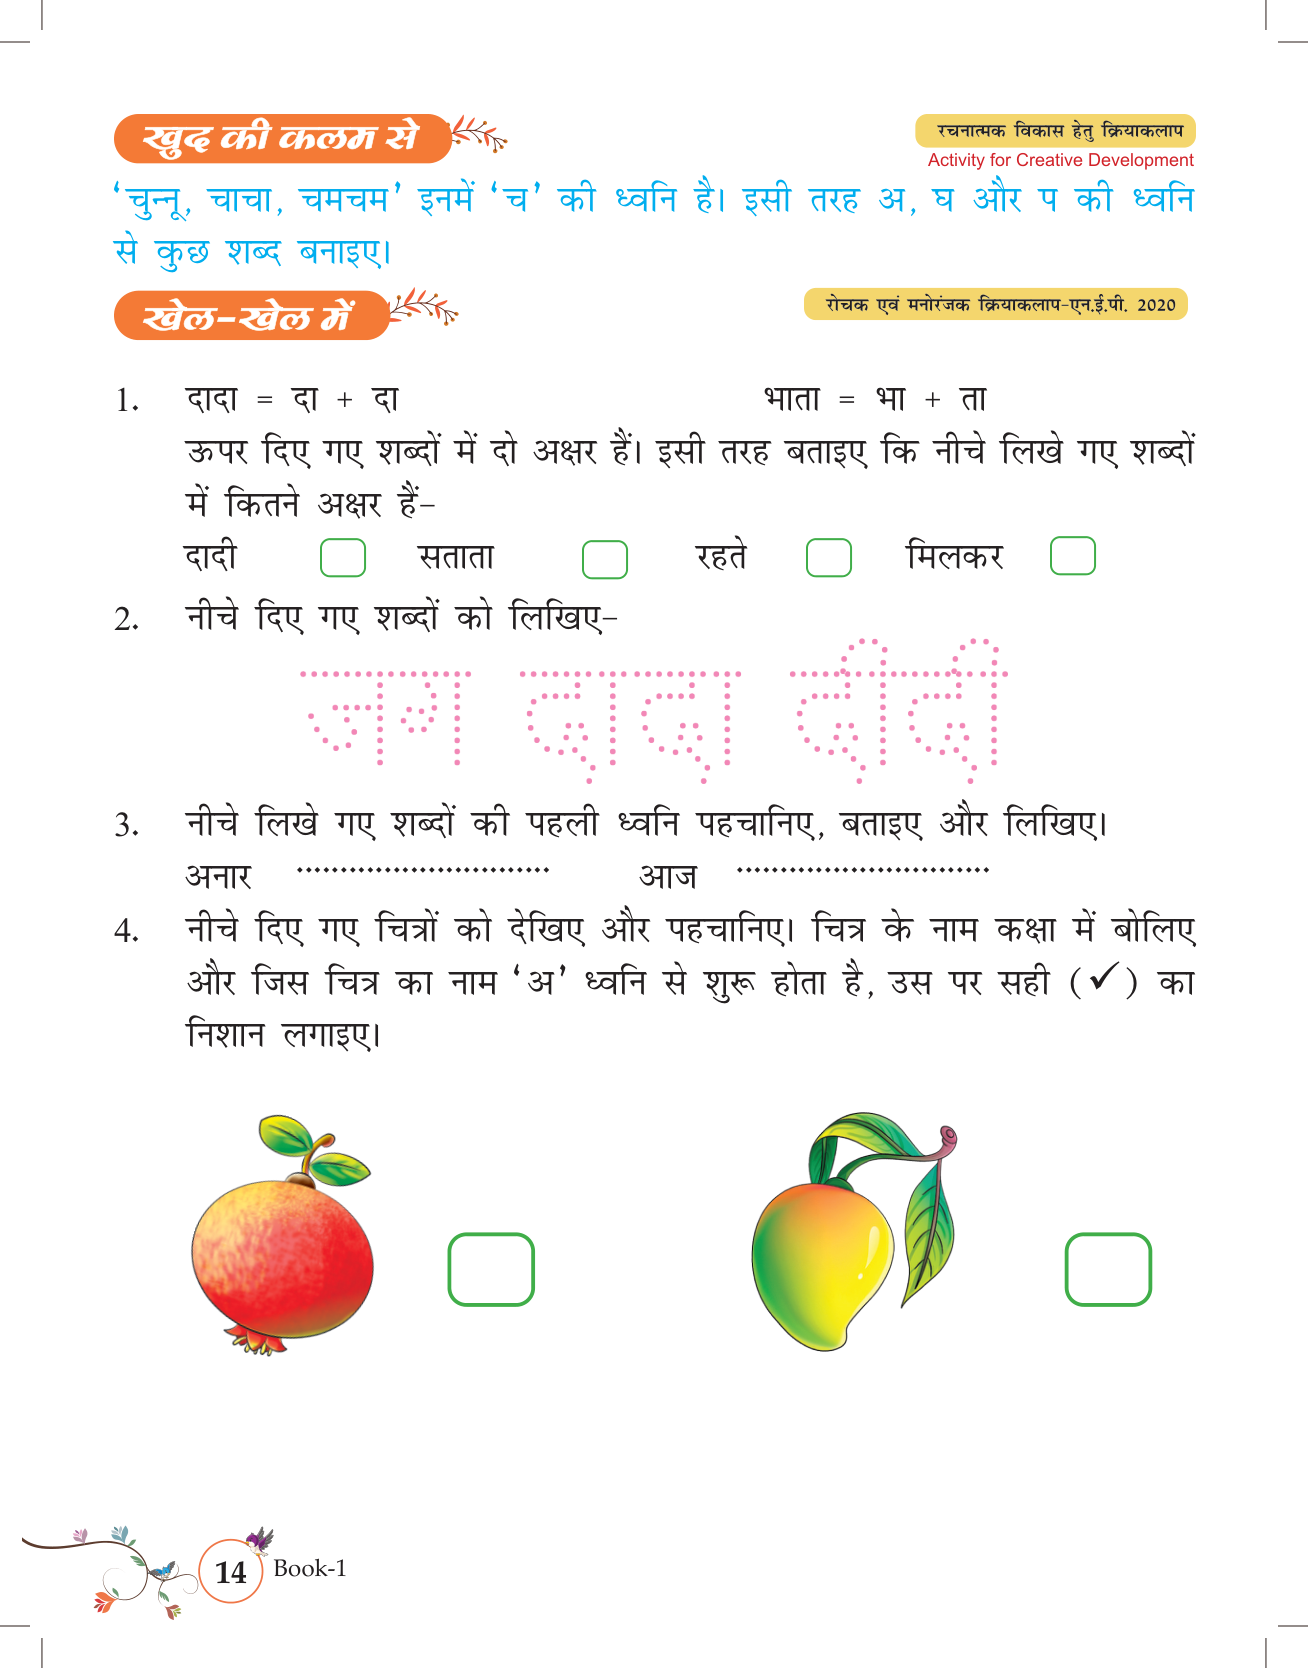 खुद की कलम से
रचनात्मक विकास हेतु क्रियाकलाप
Activity for Creative Development
‘चुन्नू, चाचा, चमचम’ इनमें ‘च’ की ध्वनि है। इसी तरह अ, घ और प की ध्वनि
से कुछ शब्द बनाइए।
खेल-खेल में
रोचक एवं मनोरंजक क्रियाकलाप-एन.ई.पी. 2020
1. दादा = दा + दा भाता = भा + ता
ऊपर दिए गए शब्दों में दो अक्षर हैं। इसी तरह बताइए कि नीचे लिखे गए शब्दों
में कितने अक्षर हैं-
दादी सताता रहते मिलकर
2. नीचे दिए गए शब्दों को लिखिए-
जग दादा दीदी
3. नीचे लिखे गए शब्दों की पहली ध्वनि पहचानिए, बताइए और लिखिए।
अनार ............................. आज .............................
4. नीचे दिए गए चित्रों को देखिए और पहचानिए। चित्र के नाम कक्षा में बोलिए
और जिस चित्र का नाम ‘अ’ ध्वनि से शुरू होता है, उस पर सही (✓) का
निशान लगाइए।
14 Book-1